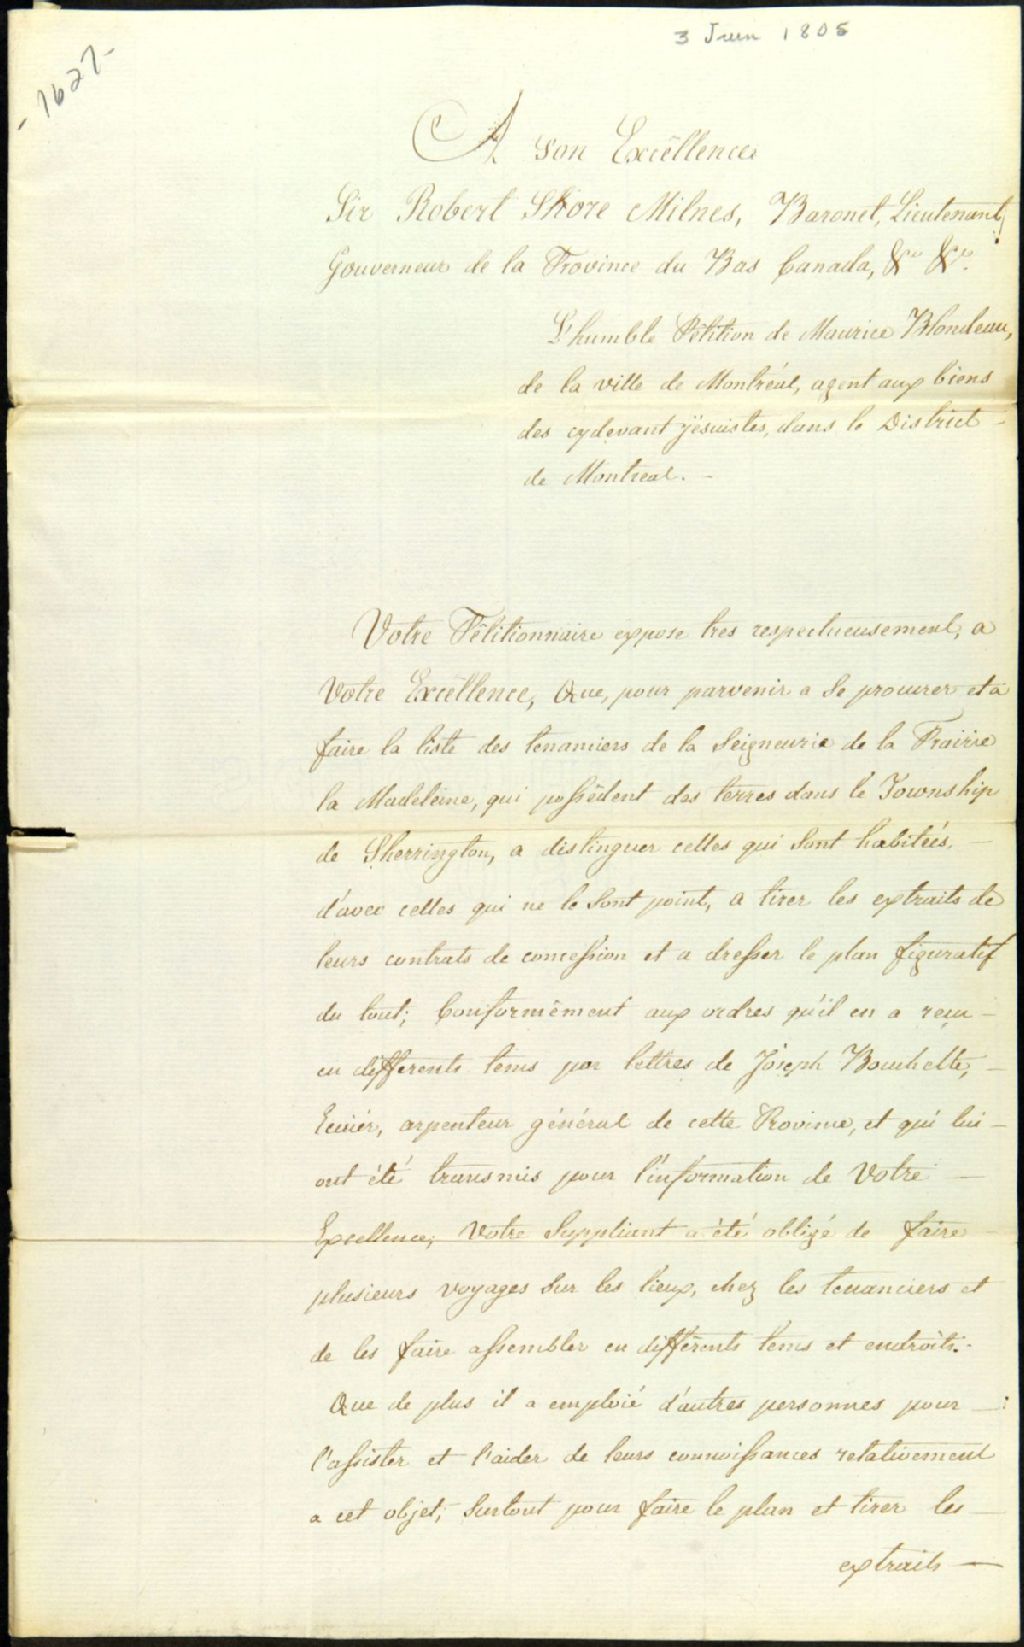 3 Juin 1805
-1627-
A Son Excéllence
Sir Robert Shore Milnes, Baronet, Lieutenant
Gouverneur de la Province du Bas Canada, &c &c.
L'humble Pétition de Maurice Blondeau,
de la ville de Montréal, agent aux biens
des cydevant jésuistes, dans le District
de Montreal. -
Votre Pétitionnaire expose tres respectueusement, a
Votre Excéllence, Que, pour parvenir a se procurer et a
faire la liste des tenanciers de la Seigneurie de la Prairie
la Madeleine, qui possédent des terres dans le Township
de Sherrington, a distinguer celles qui sont habitées. -
d'avec celles qui ne le sont point, a tirer les extraits de
leurs contrats de concession et a dresser le plan figuratif
du tout; Conformément aux ordres qu'il en a reçu -
en differents tems par lettres de Joseph Bouchette, -
Ecuier, arpenteur général de cette Province, et qui lui -
ont été transmis pour l'information de Votre -
Excellence; Votre Suppliant a été obligé de faire -
plusieurs voyages sur les lieux, chez les tenanciers et
de les faire assembler en différents tems et endroits. -
Que de plus il a emploié d'autres personnes pour - :
l'assister et l'aider de leurs connoissances relativement
a cet objet; surtout pour faire le plan et tirer les -
extraits -